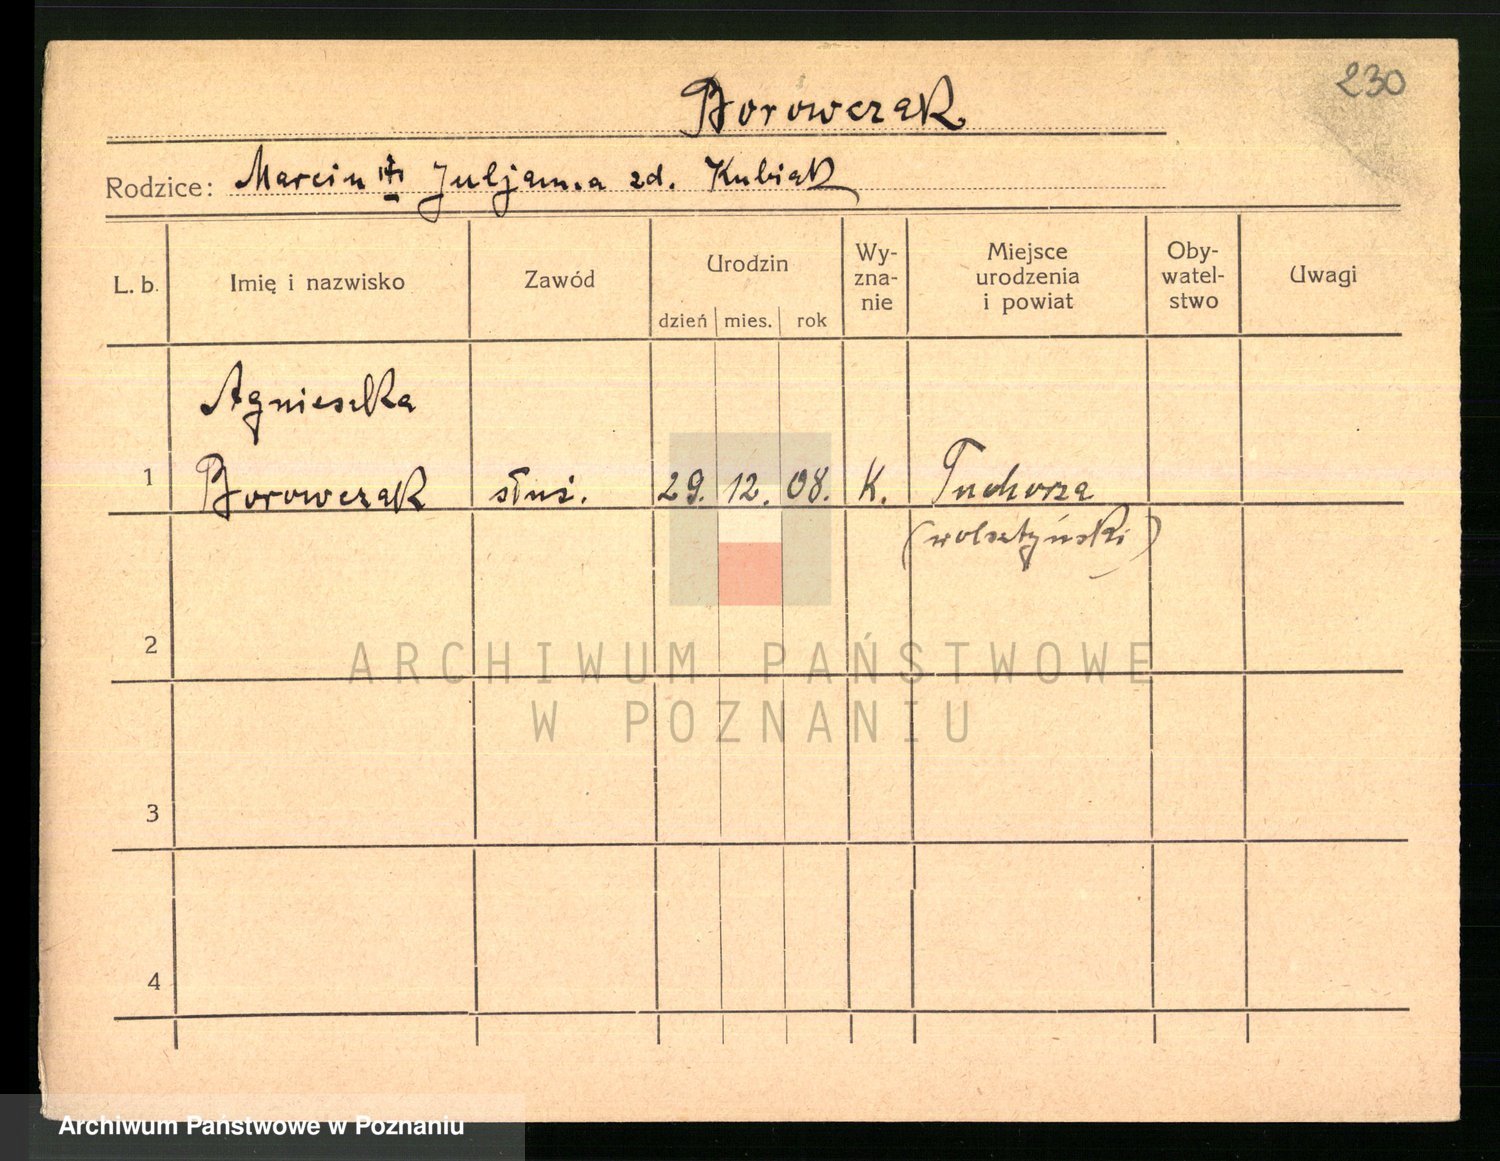 230
Borowczak
Rodzice: Marcin i Juljanna zd. Kubiak
L. b. Imię i nazwisko Zawód Urodzin dzień mies. rok Wy-zna-nie Miejsce urodzenia i powiat Oby-watel-stwo Uwagi
Agnieszka
1 Borowczak służ. 29. 12. 08. K. Tuchorza
(wolsztyński)
2
ARCHIWUM PAŃSTWOWE
W POZNANIU
3
4
Archiwum Państwowe w Poznaniu